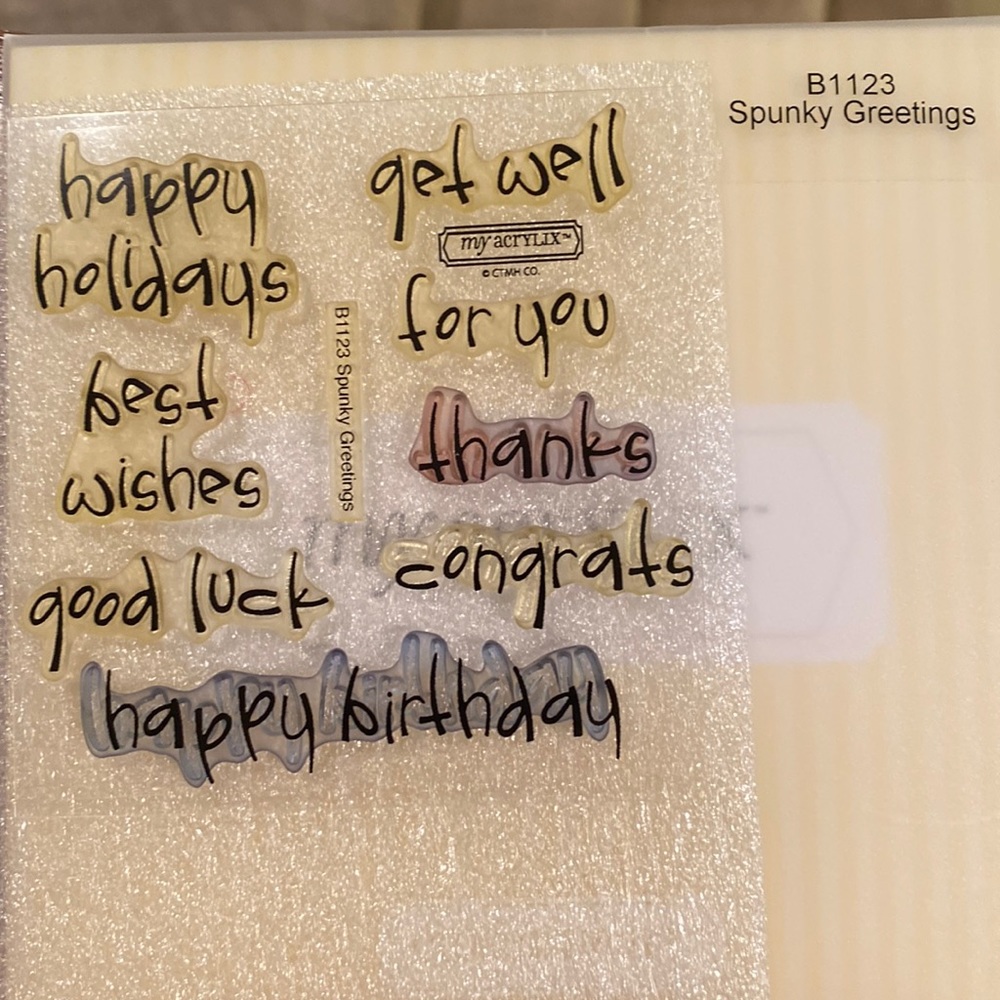 B1123
Spunky Greetings
happy
holidays
get well
my ACRYLIX™
© CTMH CO.
for you
B1123 Spunky Greetings
best
wishes
thanks
good luck
congrats
happy birthday